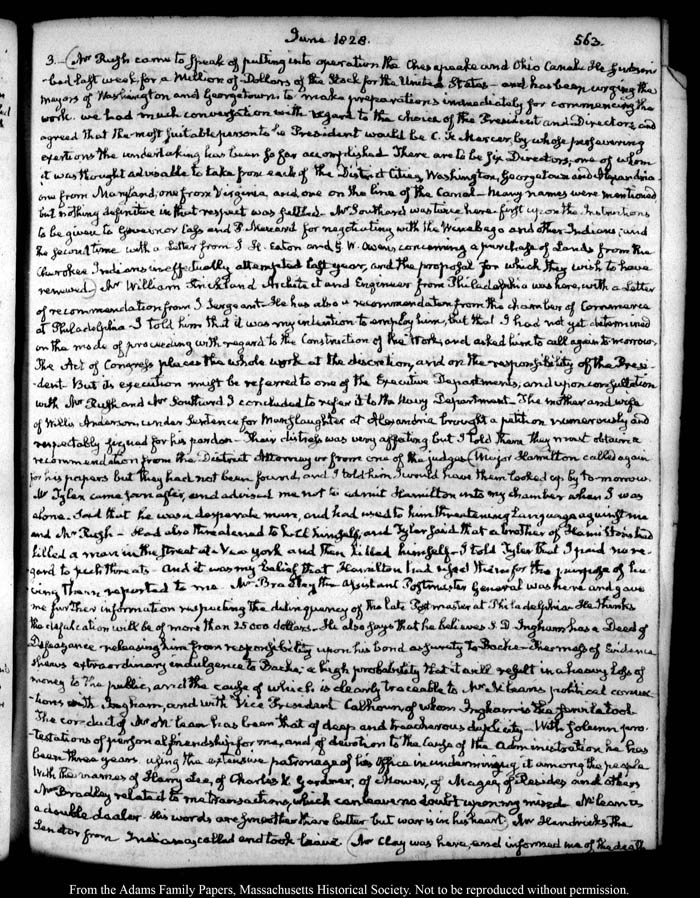 June 1828.
563.
3. Mr Rush came to speak of putting into operation the Chesapeake and Ohio Canal. He subscri-
-bed last week for a Million of Dollars of the Stock for the United States—and has been urging the
mayors of Washington and Georgetown to make preparations immediately for commencing the
work. we had much conversation with regard to the choice of the President and Directors, and
agreed that the most suitable person to be President would be C. F. Mercer, by whose persevering
exertions the undertaking has been so far accomplished. There are to be six Directors, one of whom
it was thought advisable to take from each of the District Cities, Washington, Georgetown and Alexandria
one from Maryland, one from Virginia, and one on the line of the Canal—Many names were mentioned
but nothing definitive in that respect was settled—Mr Southard was twice here—first upon the Instructions
to be given to Governor Cass and P. Menard for negotiating with the Winebago and other Indians; and
the second time with a Letter from J. H. Eaton and G. W. Owen concerning a purchase of Lands from the
Cherokee Indians ineffectually attempted last year, and the proposal for which they wish to have
renewed. Mr William Strickland Architect and Engineer from Philadelphia was here, with a Letter
of recommendation from J Sergeant—He has also a recommendation from the Chamber of Commerce
at Philadelphia—I told him that it was my intention to employ him, but that I had not yet determined
on the mode of proceeding with regard to the Construction of the Work, and asked him to call again to-morrow.
The Act of Congress places the whole work at the discretion, and on the responsibility of the Presi-
-dent. But its execution must be referred to one of the Executive Departments, and upon consultation
with Mr Rush and Mr Southard I concluded to refer it to the Navy Department—The mother and wife
of Willis Anderson, under Sentence for Manslaughter at Alexandria brought a petition numerously and
respectably signed for his pardon—Their distress was very affecting but I told them they must obtain a
recommendation from the District Attorney or from one of the judges. Major Hamilton called again
for his papers but they had not been found, and I told him I would have them looked up by to-morrow.
Mr Tyler came soon after, and advised me not to admit Hamilton into my chamber when I was
alone. Said that he was a desperate man, and had used to him threatening Language against me
and Mr Rush—Had also threatened to kill himself, and Tyler said that a brother of Hamiltons had
killed a man in the street at New York and then killed himself—I told Tyler that I paid no re-
gard to such threats—And it was my belief that Hamilton had used them for the purpose of ha-
ving them reported to me. Mr Bradley the assistant Postmaster General was here and gave
me further information respecting the delinquency of the late Postmaster at Philadelphia. He thinks
the defalcation will be of more than 25000 dollars—He also says that he believes S. D. Ingham has a Deed of
Defeasance releasing him from responsibility upon his bond as surety to Bache—The mass of Evidence
shews extraordinary indulgence to Bache; a high probability that it will result in a heavy loss of
money to the public, and the cause of which is clearly traceable to Mr McLeans political connec-
-tions with Ingham, and with Vice President Calhoun, of whom Ingham is the favorite tool.
The conduct of Mr McLean has been that of deep and treacherous duplicity—With solemn pro-
testations of personal friendship for me, and of devotion to the cause of the Administration he has
been three years using the extensive patronage of his Office in undermining it among the people
With the names of Harry Lee, of Charles K. Gardner, of Mower, of Magee, of Resides and others
Mr Bradley related to me transactions, which can leave no doubt upon my mind. McLean is
a double dealer. His words are smoother than butter but war is in his heart. Mr Hendricks the
Senator from Indiana called and took leave. Mr Clay was here, and informed me of the death
From the Adams Family Papers, Massachusetts Historical Society. Not to be reproduced without permission.